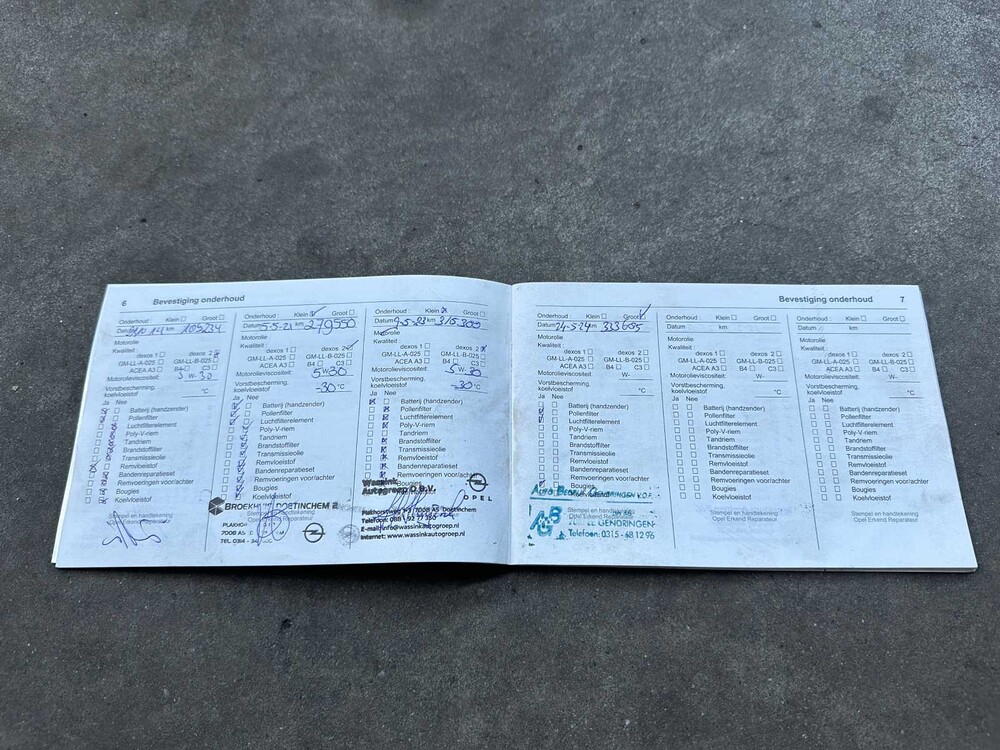 6 Bevestiging onderhoud
Onderhoud : Klein Groot
Datum km 109234
Motorolie
Kwaliteit :
dexos 1 dexos 2
GM-LL-A-025 GM-LL-B-025
ACEA A3 B4 C3
Motorolieviscositeit: 5 W-30
Vorstbescherming.
koelvloeistof °C
Ja Nee
Batterij (handzender)
Pollenfilter
Luchtfilterelement
Poly-V-riem
Tandriem
Brandstoffilter
Transmissieolie
Remvloeistof
Bandenreparatieset
Remvoeringen voor/achter
Bougies
Koelvloeistof
Stempel en handtekening
Onderhoud : Klein Groot
Datum 5-5-21 km 279550
Motorolie
Kwaliteit :
dexos 1 dexos 2
GM-LL-A-025 GM-LL-B-025
ACEA A3 B4 C3
Motorolieviscositeit: 5 W-30
Vorstbescherming.
koelvloeistof -30 °C
Ja Nee
Batterij (handzender)
Pollenfilter
Luchtfilterelement
Poly-V-riem
Tandriem
Brandstoffilter
Transmissieolie
Remvloeistof
Bandenreparatieset
Remvoeringen voor/achter
Bougies
Koelvloeistof
DOETINCHEM
7008 AS
TEL. 0314 -
Onderhoud : Klein Groot
Datum km 315300
Motorolie
Kwaliteit :
dexos 1 dexos 2
GM-LL-A-025 GM-LL-B-025
ACEA A3 B4 C3
Motorolieviscositeit: 5 W-30
Vorstbescherming.
koelvloeistof -30 °C
Ja Nee
Batterij (handzender)
Pollenfilter
Luchtfilterelement
Poly-V-riem
Tandriem
Brandstoffilter
Transmissieolie
Remvloeistof
Bandenreparatieset
Remvoeringen voor/achter
Bougies
Wassink
Autogroep B.V.
OPEL
7005 AS Doetinchem
E-mail: info@wassinkautogroep.nl
Internet: www.wassinkautogroep.nl
Bevestiging onderhoud 7
Onderhoud : Klein Groot
Datum 24-5-24 km 333655
Motorolie
Kwaliteit :
dexos 1 dexos 2
GM-LL-A-025 GM-LL-B-025
ACEA A3 B4 C3
Motorolieviscositeit: W-
Vorstbescherming.
koelvloeistof °C
Ja Nee
Batterij (handzender)
Pollenfilter
Luchtfilterelement
Poly-V-riem
Tandriem
Brandstoffilter
Transmissieolie
Remvloeistof
Bandenreparatieset
Remvoeringen voor/achter
Bougies
Koelvloeistof
Stempel en handtekening
Opel Erkend Reparateur
GENDRINGEN
Telefoon: 0315 - 68 12 96
Onderhoud : Klein Groot
Datum km
Motorolie
Kwaliteit :
dexos 1 dexos 2
GM-LL-A-025 GM-LL-B-025
ACEA A3 B4 C3
Motorolieviscositeit: W-
Vorstbescherming.
koelvloeistof °C
Ja Nee
Batterij (handzender)
Pollenfilter
Luchtfilterelement
Poly-V-riem
Tandriem
Brandstoffilter
Transmissieolie
Remvloeistof
Bandenreparatieset
Remvoeringen voor/achter
Bougies
Koelvloeistof
Stempel en handtekening
Opel Erkend Reparateur
Onderhoud : Klein Groot
Datum : km
Motorolie
Kwaliteit :
dexos 1 dexos 2
GM-LL-A-025 GM-LL-B-025
ACEA A3 B4 C3
Motorolieviscositeit: W-
Vorstbescherming.
koelvloeistof °C
Ja Nee
Batterij (handzender)
Pollenfilter
Luchtfilterelement
Poly-V-riem
Tandriem
Brandstoffilter
Transmissieolie
Remvloeistof
Bandenreparatieset
Remvoeringen voor/achter
Bougies
Koelvloeistof
Stempel en handtekening
Opel Erkend Reparateur